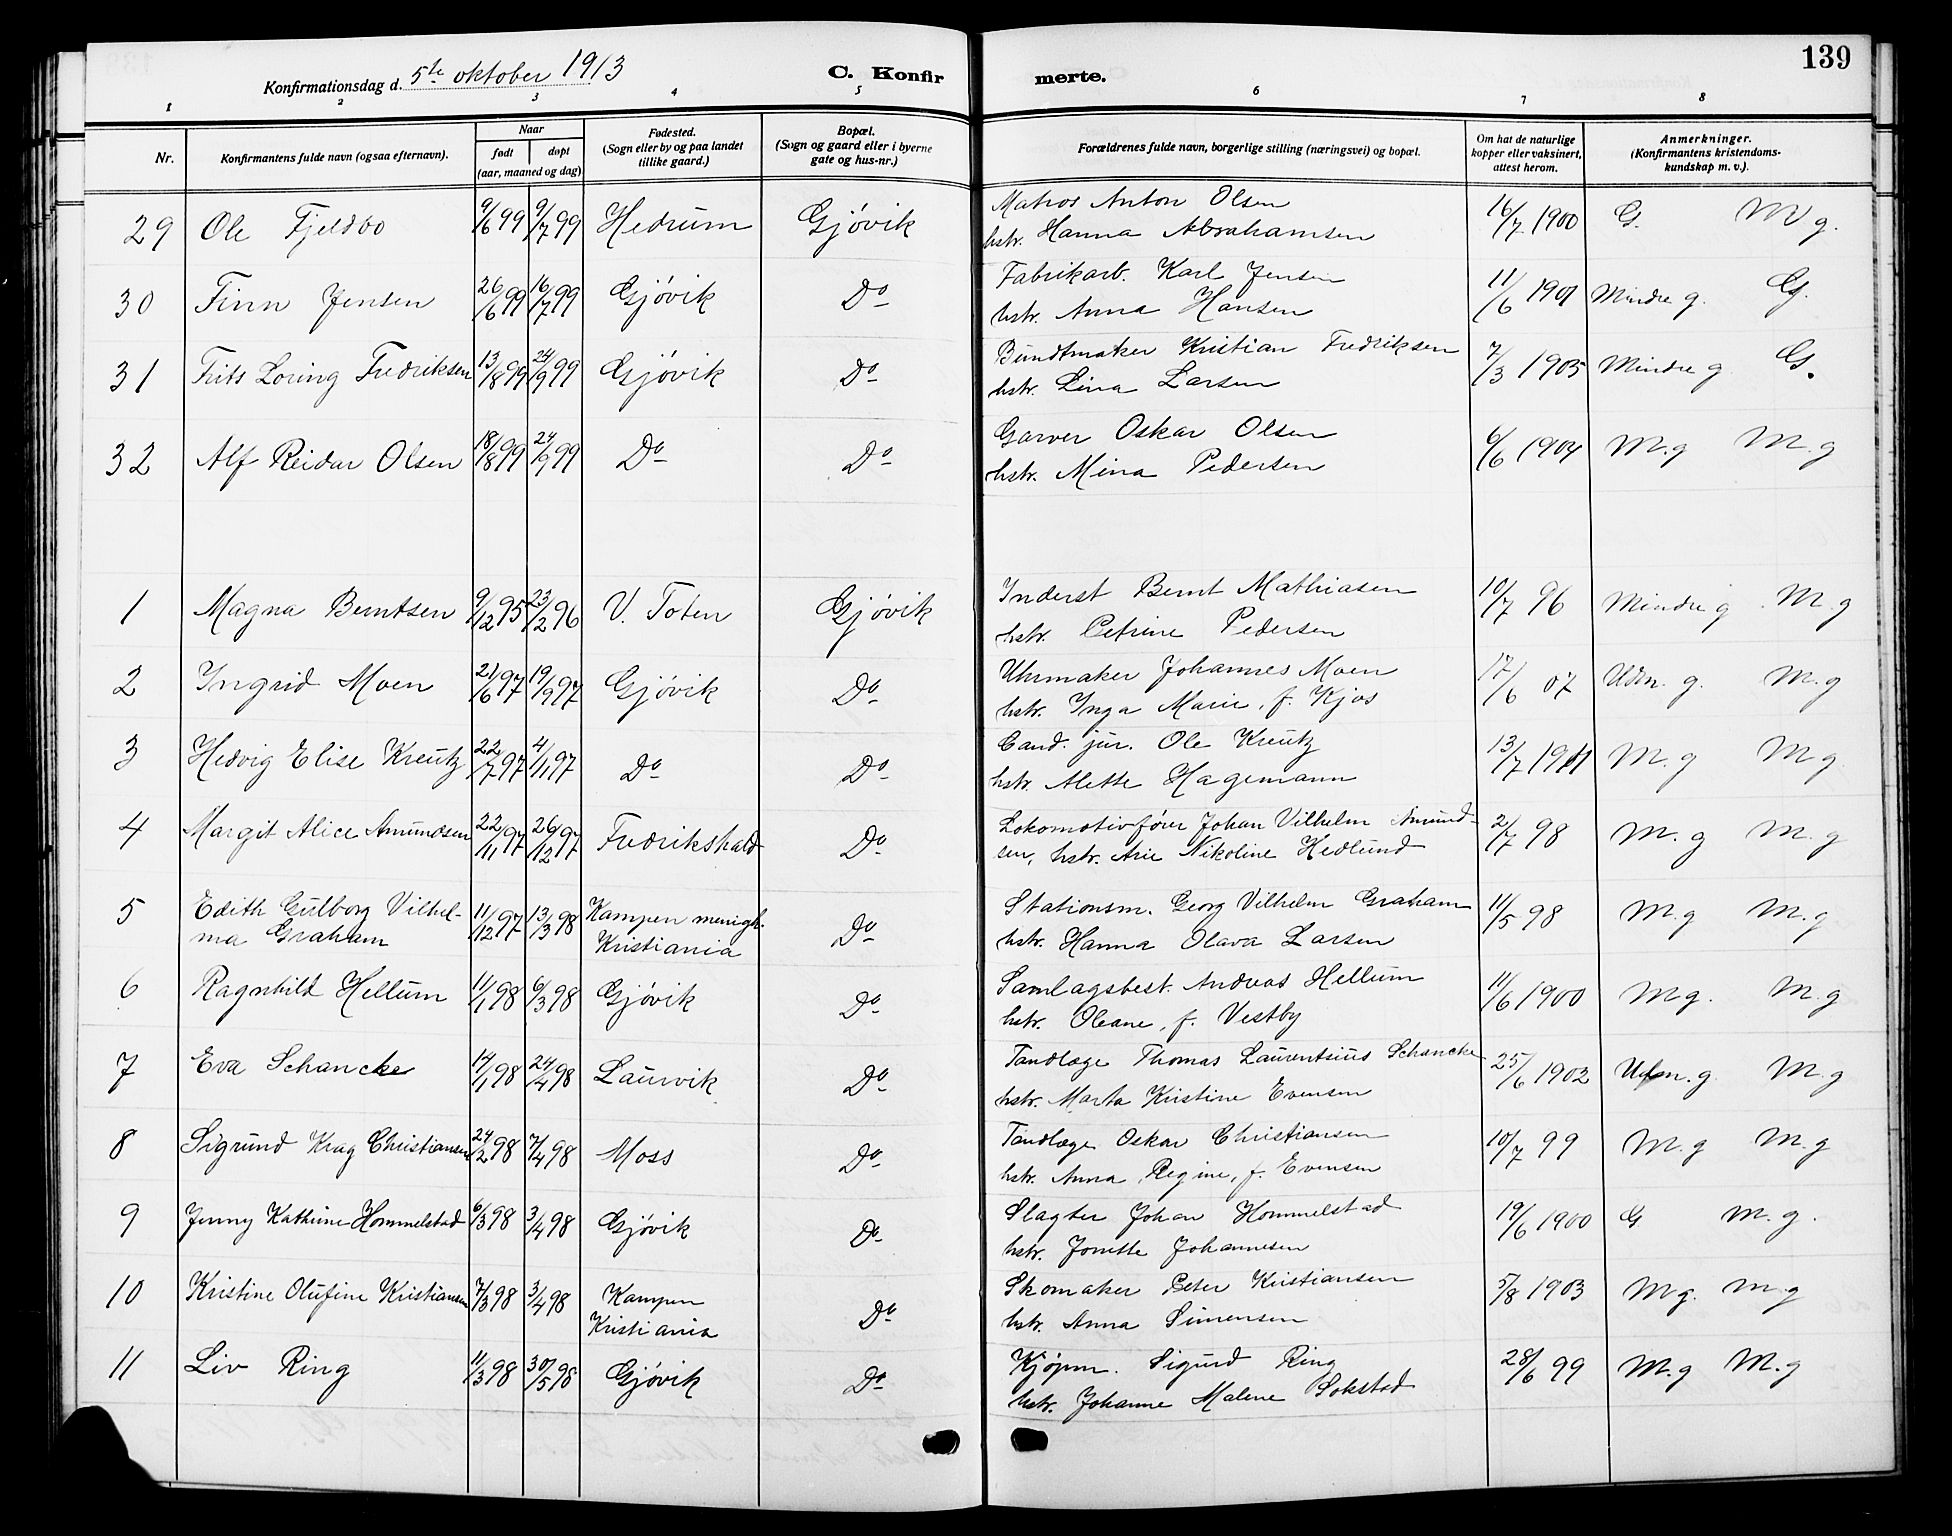 139
Konfirmationsdag d. 5te oktober 1913
C. Konfirmerte.
1 2 3 4 5 6 7 8
Nr.
Konfirmantens fulde navn (ogsaa efternavn).
Naar
født døpt
(aar, maaned og dag)
Fødested.
(Sogn eller by og paa landet
tillike gaard.)
Bopæl.
(Sogn og gaard eller i byerne
gate og hus-nr.)
Forældrenes fulde navn, borgerlige stilling (næringsvei) og bopæl.
Om hat de naturlige
kopper eller vaksinert,
attest herom.
Anmerkninger.
(Konfirmantens kristendoms-
kundskap m. v.).
29 Ole Fjeldbo 9/6 99 9/7 99 Hedrum Gjövik Matros Anton Olsen 16/7 1900 G. M g.
hstr. Hanna Abrahamsen
30 Finn Jensen 26/6 99 16/7 99 Gjövik Do Fabrikarb. Karl Jensen 11/6 1901 Mindre g. G.
hstr. Anna Hansen
31 Frits Loring Fredriksen 13/8 99 24/9 99 Gjövik Do Bundtmaker Kristian Fredriksen 7/3 1905 Mindre g G.
hstr. Lina Larsen
32 Alf Reidar Olsen 18/8 99 24/9 99 Do Do Garver Oskar Olsen 6/6 1904 M.g M.g
hstr. Mina Pedersen
1 Magna Berntsen 9/12 95 23/2 96 V. Toten Gjövik Inderst Bernt Mathiasen 10/7 96 Mindre g M.g
hstr. Petrine Pedersen
2 Ingrid Moen 21/6 97 19/9 97 Gjövik Do Uhrmaker Johannes Moen 17/6 07 Udm. g. M.g
hstr. Inga Marie, f. Kjos
3 Hedvig Elise Kreutz 22/7 97 4/11 97 Do Do Cand. jur. Ole Kreutz 13/7 1911 M.g M g.
hstr. Alette Hagemann
4 Margit Alice Amundsen 22/11 97 26/12 97 Fredrikshald Do Lokomotivförer Johan Vilhelm Amund- 2/7 98 M.g M.g
sen, hstr. Nikoline Hedlund
5 Edith Gulborg Vilhel- 11/12 97 13/3 98 Kampen menigh. Do Stationsm. Georg Vilhelm Graham 11/5 98 M.g M.g
ma Graham Kristiania hstr. Hanna Olava Larsen
6 Ragnhild Hellum 11/1 98 6/3 98 Gjövik Do Samlagsbest. Andreas Hellum 11/6 1900 M g. M.g
hstr. Oleane, f. Vestby
7 Eva Schancke 14/1 98 24/4 98 Laurvik Do Tandlæge Thomas Laurentsius Schancke 25/6 1902 Udm. g. M.g
hstr. Marta Kristine Evensen
8 Sigrund Krag Christiansen 24/2 98 7/4 98 Moss Do Tandlæge Oskar Christiansen 10/7 99 M.g M.g
hstr. Anna Regine, f. Evensen
9 Jenny Kathrine Hommelstad 6/3 98 3/4 98 Gjövik Do Slagter Johan Hommelstad 19/6 1900 G M.g.
hstr. Jonette Johannesen
10 Kristine Olufine Kristiansen 7/3 98 3/4 98 Kampen Do Skomaker Peter Kristiansen 5/8 1903 M g. M.g
Kristiania hstr. Anna Simensen
11 Liv Ring 11/3 98 30/5 98 Gjövik Do Kjöpm. Sigurd Ring 28/6 99 M.g M.g
hstr. Johanne Malene Sokstad